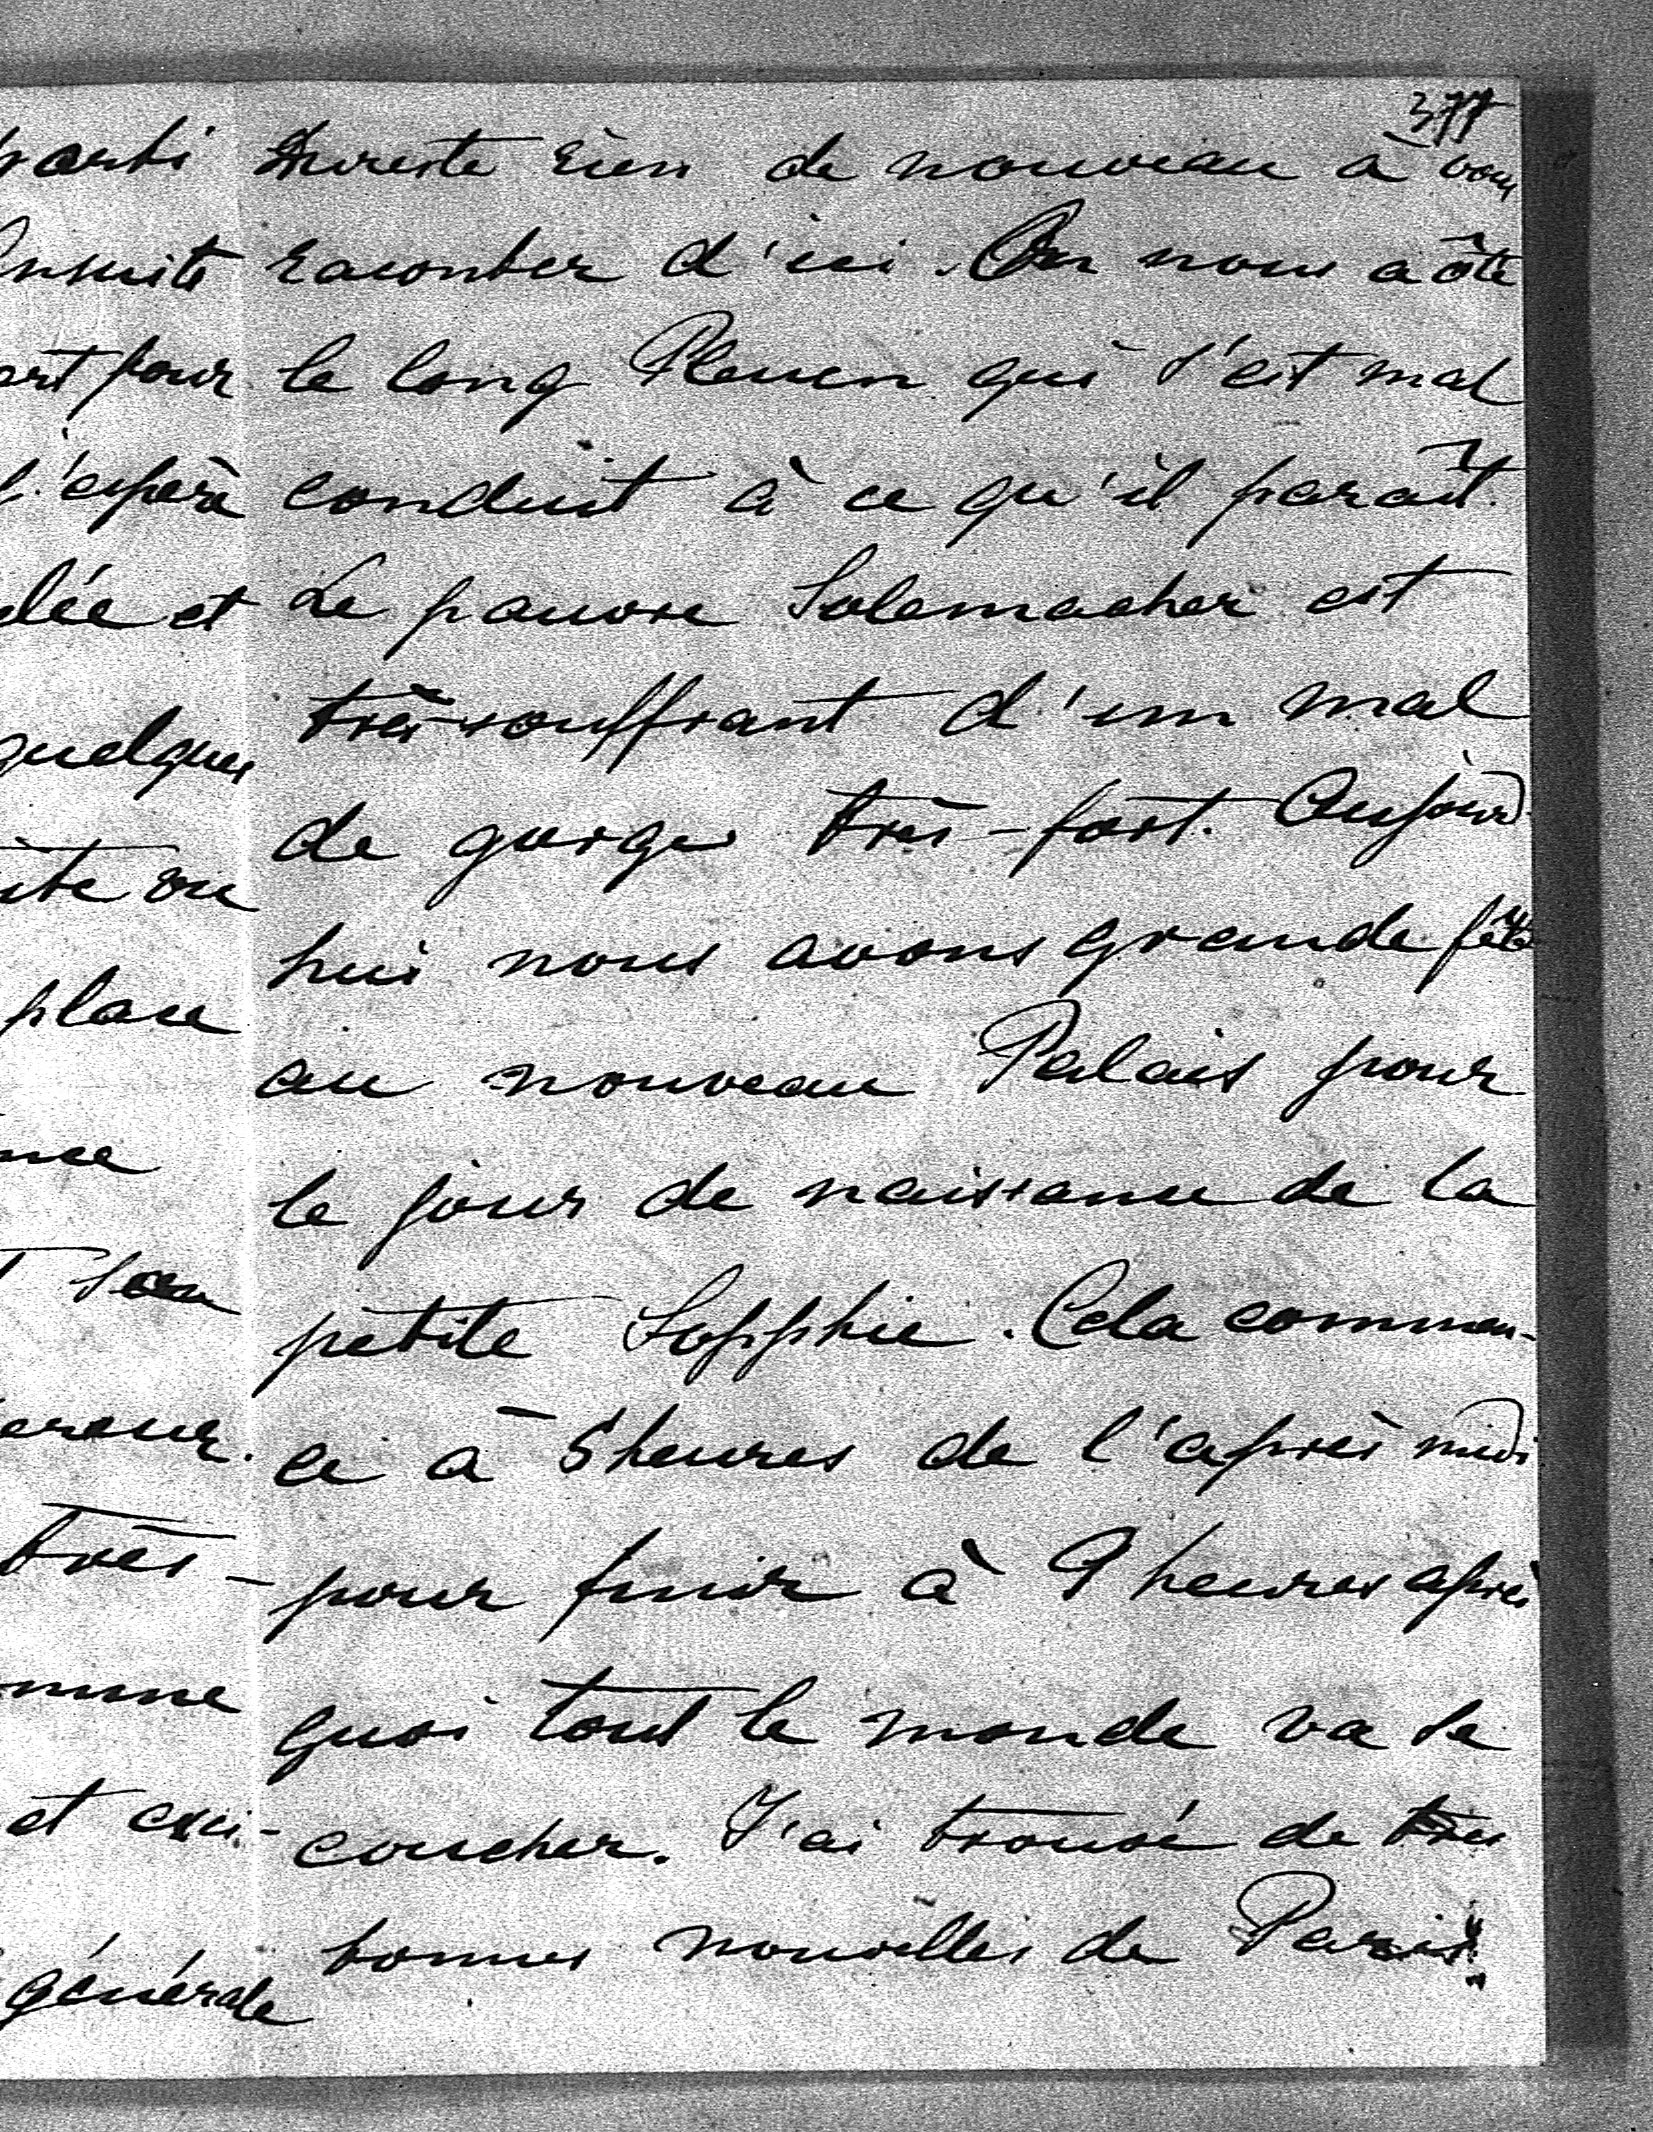 377
Dureste rien de nouveau à vous
raconter d'ici. On nous a ôté
le long Pleuen qui s'est mal
conduit à ce qu'il paraît.
Le pauvre Solemacher est
très-souffrant d'un mal
de gorge très-fort. Aujourd
hui nous avons grande fête
au nouveau Palais pour
le jour de naissance de la
petite Sopphie. Cela commen-
ce à 5 heures de l'après midi
pour finir à 9 heures après
quoi tout le monde va se
coucher. J'ai trouvé de très
bonnes nouvelles de Paris!
parti
Ensuite
art pour
l'espère
dée et
quelques
ite ou
place
nce
son
très-
mune
et exci-
générale